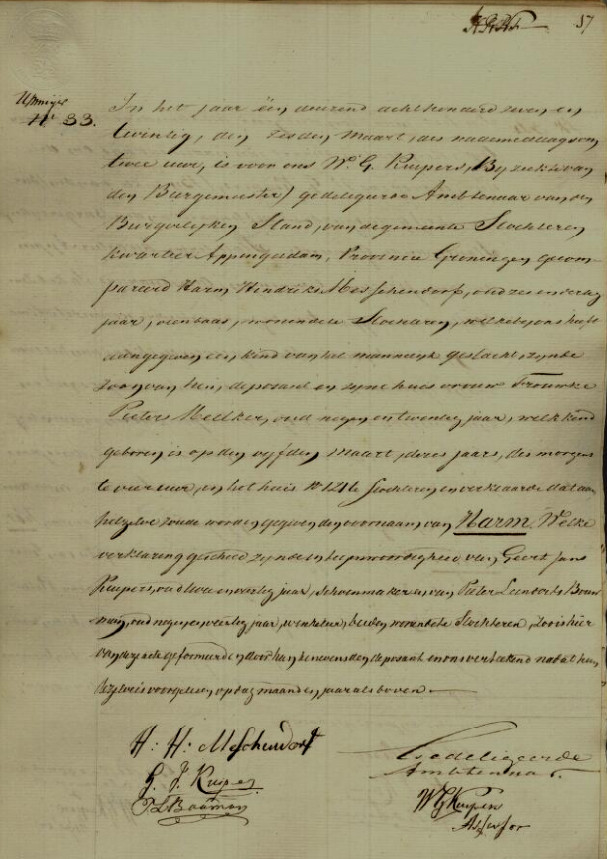 57
No 33.
In het jaar één duizend achthonderd zeven en
twintig, den zesden Maart, des nademiddags om
twee uur, is voor ons W. G. Kuipers, (By ziekte van
den Burgemeester) gedelegeerde Ambtenaar van den
Burgerlijken Stand, van de gemeente Slochteren
kwartier Appingedam, Provincie Groningen gecom-
pareerd Harm Hindriks Messchendorp, oud zes en dertig
jaar, wonende te Slochteren, welke by ons heeft
aangegeven een kind van het mannelyk geslacht, zynde
zoon van hem, deposant en zyne huisvrouw Trouwke
Pieters Mellker, oud negen en twentig jaar, welk kind
geboren is op den vyfden maart, dezes jaars, des morgens
te vier uur, in het huis No 121 te Slochteren en verklaarde dat aan
hetzelve zoude worden gegeven den voornaam van Harm Welke
verklaring geschied zynde in tegenwoordigheid van Geert Jans
Kuipers, oud twee en veertig jaar, schoenmaker en van Pieter Lamberts Bouw-
man, oud negen en veertig jaar, beiden wonende te Slochteren, Zoo is hier
van deze acte geformeerd en door hen benevens den deposant en ons verteekend na dat hun
dezelve is voorgelezen op dag maand en jaar als boven.
H: H: Messchendorp
G. J. Kuiper
P L Bouman
Gedeligeerde
Ambtenaar.
W G Kuipers
Assessor